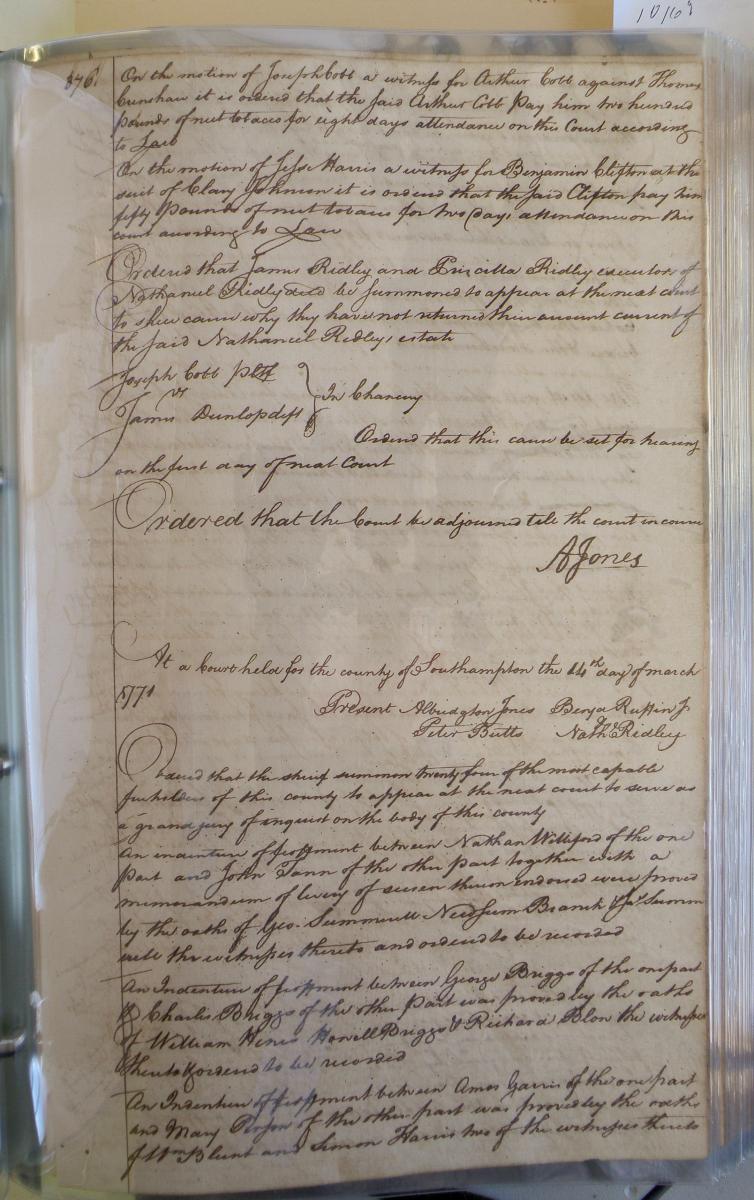 376
On the motion of Joseph Cobb a witness for Arthur Cobb against Thomas
Crenshaw it is ordered that the said Arthur Cobb Pay him two hundred
pounds of nett tobacco for eight days attendance on this Court according
to Law
On the motion of Jesse Harris a witness for Benjamin Clifton at the
suit of Clary Johnson it is ordered that the said Clifton pay him
fifty Pounds of nett tobacco for two days attendance on this
court according to Law
Ordered that James Ridley and Priscilla Ridley executors of
Nathaniel Ridley decd be summoned to appear at the next court
to shew cause why they have not returned their account current of
the said Nathaniel Ridleys estate
Joseph Cobb Pltf
vs
James Dunlop deft
In Chancery
Ordered that this cause be set for hearing
on the first day of next Court
Ordered that the Court be adjourned till the court in course
AJones
At a Court held for the county of Southampton the 14th day of march
1771
Present Albridgton Jones Benja Ruffin Jr
Peter Butts Nathl Ridley
Ordered that the sherif summon twenty four of the most capable
freeholders of this county to appear at the next court to serve as
a grand jury of inquest on the body of this county
An indenture of feoffment between Nathan Williford of the one
part and John Tann of the other Part together with a
memorandum of livery of seisen thereon endorsed were proved
by the oaths of Geo. Summerell Needham Branch &
the witnesses thereto and ordered to be recorded
An Indenture of feoffment between George Briggs of the one part
& Charles Briggs of the other Part was proved by the oaths
of William Hines Howell Briggs & Richard Blow the witnesses
thereto & ordered to be recorded
An Indenture of feoffment between Amos Garris of the one part
and Mary Person of the other part was proved by the oaths
of Wm Blunt and Simon Harris two of the witnesses thereto